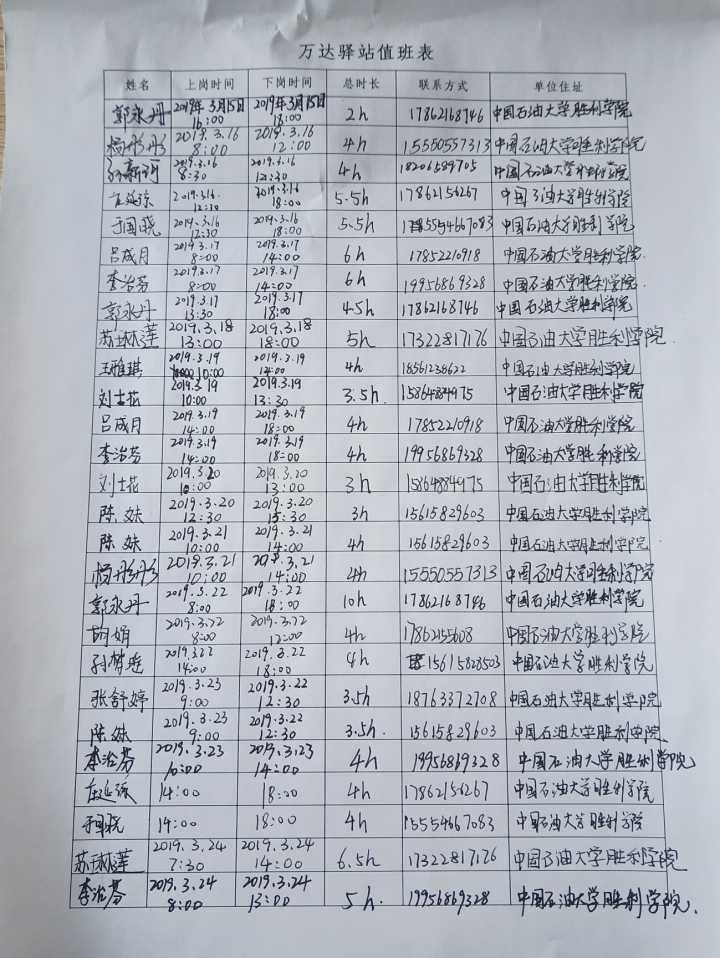 万达驿站值班表
姓名 上岗时间 下岗时间 总时长 联系方式 单位住址
郭永丹 2019年3月15日 16:00 2019年3月15日 18:00 2h 17862168746 中国石油大学胜利学院
杨彤彤 2019.3.16 8:00 2019.3.16 12:00 4h 15550557313 中国石油大学胜利学院
2019.3.16 8:30 2019.3.16 12:30 4h 18206589705 中国石油大学胜利学院
庄延琼 2019.3.16 12:30 2019.3.16 18:00 5.5h 17862156267 中国石油大学胜利学院
于国晓 2019.3.16 12:30 2019.3.16 18:00 5.5h 15554667083 中国石油大学胜利学院
吕成月 2019.3.17 8:00 2019.3.17 14:00 6h 17852210918 中国石油大学胜利学院
李治芬 2019.3.17 8:00 2019.3.17 14:00 6h 19956869328 中国石油大学胜利学院
郭永丹 2019.3.17 13:30 2019.3.17 18:00 4.5h 17862168746 中国石油大学胜利学院
苏琳莲 2019.3.18 13:00 2019.3.18 18:00 5h 17322817176 中国石油大学胜利学院.
王雅琪 2019.3.19 10:00 2019.3.19 14:00 4h 18561238622 中国石油大学胜利学院
刘士花 2019.3.19 10:00 2019.3.19 13:30 3.5h 15864884975 中国石油大学胜利学院
吕成月 2019.3.19 14:00 2019.3.19 18:00 4h 17852210918 中国石油大学胜利学院
李治芬 2019.3.19 14:00 2019.3.19 18:00 4h 19956869328 中国石油大学胜利学院
刘士花 2019.3.20 10:00 2019.3.20 13:00 3h 15864884975 中国石油大学胜利学院
陈姝 2019.3.20 12:30 2019.3.20 15:30 3h 15615829603 中国石油大学胜利学院
陈姝 2019.3.21 10:00 2019.3.21 14:00 4h 15615829603 中国石油大学胜利学院
杨彤彤 2019.3.21 10:00 2019.3.21 14:00 4h 15550557313 中国石油大学胜利学院
郭永丹 2019.3.22 8:00 2019.3.22 18:00 10h 17862168746 中国石油大学胜利学院
胡娟 2019.3.22 8:00 2019.3.22 12:00 4h 17862155608 中国石油大学胜利学院
2019.3.22 14:00 2019.3.22 18:00 4h 15615828503 中国石油大学胜利学院
张舒婷 2019.3.23 9:00 2019.3.22 12:30 3.5h 18763372708 中国石油大学胜利学院
陈姝 2019.3.23 9:00 2019.3.22 12:30 3.5h. 15615829603 中国石油大学胜利学院.
李治芬 2019.3.23 10:00 2019.3.23 14:00 4h 19956869328 中国石油大学胜利学院
庄延琼 14:00 18:00 4h 17862156267 中国石油大学胜利学院
于国晓 14:00 18:00 4h 15554667083 中国石油大学胜利学院
苏琳莲 2019.3.24 7:30 2019.3.24 14:00 6.5h 17322817176 中国石油大学胜利学院
李治芬 2019.3.24 8:00 2019.3.24 13:00 5h. 19956869328 中国石油大学胜利学院.